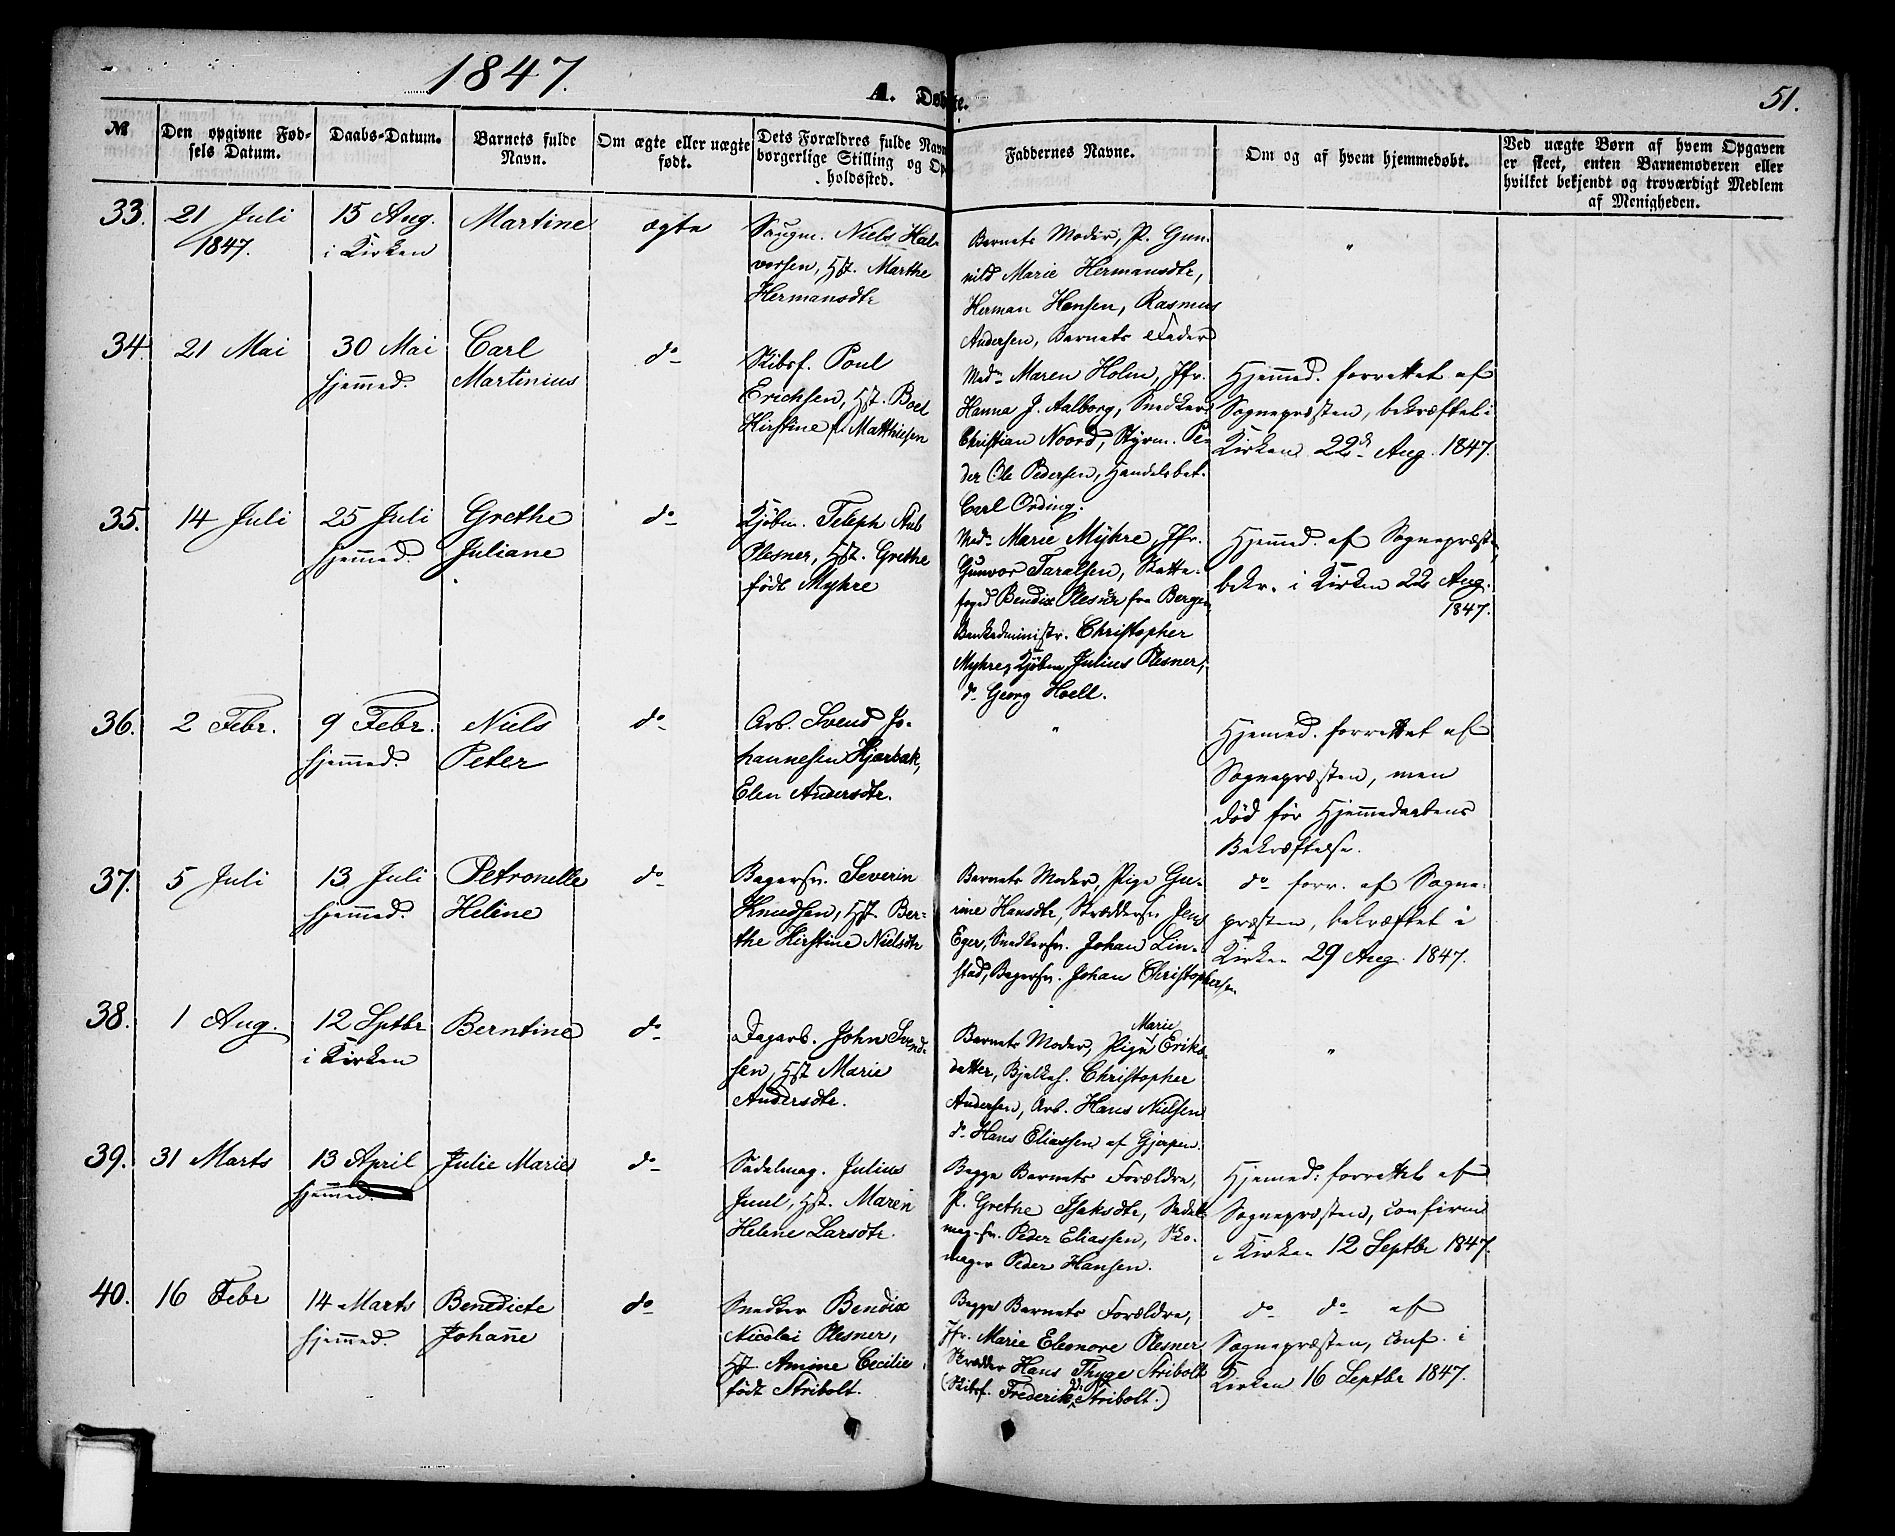 1847.
A. Døbte.
51.
№
Den opgivne Fød-
sels Datum.
Daabs-Datum.
Barnets fulde
Navn.
Om ægte eller uægte
født.
Dets Forældres fulde Navn
borgerlige Stilling og Op
holdssted.
Faddernes Navne.
Om og af hvem hjemmedøbt.
Ved uægte Børn af hvem Opgaven
er skeet, enten Barnemoderen eller
hvilket bekjendt og troværdigt Medlem
af Menigheden.
33.
21 Juli
1847.
15 Aug.
i Kirken
Martine
ægte
Saugm. Niels Hal-
vorsen, Hst. Marthe
Hermansdtr
Barnets Moder, P. Gun-
nild Marie Hermansdtr,
Herman Hansen, Rasmus
Andersen, Barnets Fader
"
34.
21 Mai
30 Mai
hjemmed.
Carl
Martinius
do
Skibsf. Poul
Erichsen, Hst. Boel
Kirstine f. Matthiesen
Mad. Maren Holm, Jfr.
Hanna J. Aalborg, Snedker
Christian Noord, Styrm. Pe-
der Ole Pedersen, Handelsbet.
Carl Ording.
Hjemmed. forrettet af
Sognepræsten, bekræftet i
Kirken 22d Aug. 1847.
35.
14 Juli
25 Juli
hjemmed.
Grethe
Juliane
do
Kjøbm. Teleph Aub
Plesner, Hst. Grethe
født Myhre
Mad. Marie Myhre, Jfr.
Gunvor Taralsen, Skatte-
foged Bendix Plesner fra Bergen
Bankadministr. Christopher
Myhre, Kjøbm. Julius Plesner,
do Georg Hoell.
Hjemmed. af Sognepræst
bekr. i Kirken 22 Aug.
1847.
36.
2 Febr.
9 Febr.
hjemmed.
Niels
Peter
do
Arb. Svend Jo-
hannesen Hjærbak,
Elen Andersdtr.
"
Hjemmed. forrettet af
Sognepræsten, men
død før Hjemmedaabens
Bekræftelse.
37.
5 Juli
13 Juli
hjemmed.
Petronelle
Heline
do
Bagersv. Severin
Knudsen, Hst. Ber-
the Kirstine Nielsdtr
Barnets Moder, Pige Gu-
rine Hansdtr, Skræddersv. Jens
Eger, Snedkersv. Johan Lin-
stad, Bagersv. Johan Christophersen
do forr. af Sogne-
præsten, bekræftet i
Kirken 29 Aug. 1847.
38.
1 Aug.
12 Sptbr
i Kirken
Berntine
do
Dagarb. John Svend-
sen, Hst Marie
Andersdtr.
Marie
Barnets Moder, Pige Eriks-
datter, Bjelkeh. Christopher
Andersen, Arb. Hans Nielsen
do Hans Eliassen af Gjerpen.
"
39.
31 Marts
13 April
hjemmed.
Julie Marie
do
Sadelmag. Julius
Juul, Hst. Maren
Helene Larsdtr.
Begge Barnets Forældre,
P. Grethe Isaksdtr, Sadel-
mag.sv. Peder Eliassen, Sko-
mager Peder Hansen.
Hjemmed: forrettet af
Sognepræsten, confirm
i Kirken 12 Septbr 1847.
40.
16 Febr
14 Marts
hjemmed.
Benedicte
Johanne
do
Snedker Bendix
Nicolai Plesner,
Hst Amine Cecilie
født Stribolt.
Begge Barnets Forældre,
Jfr. Marie Eleonore Plesner
Skrædder Hans Thyge Stribolt
(Skibsf. Frederik Stribolt.)
do do af
Sognepræsten, conf. i
Kirken 16 Septbr 1847.